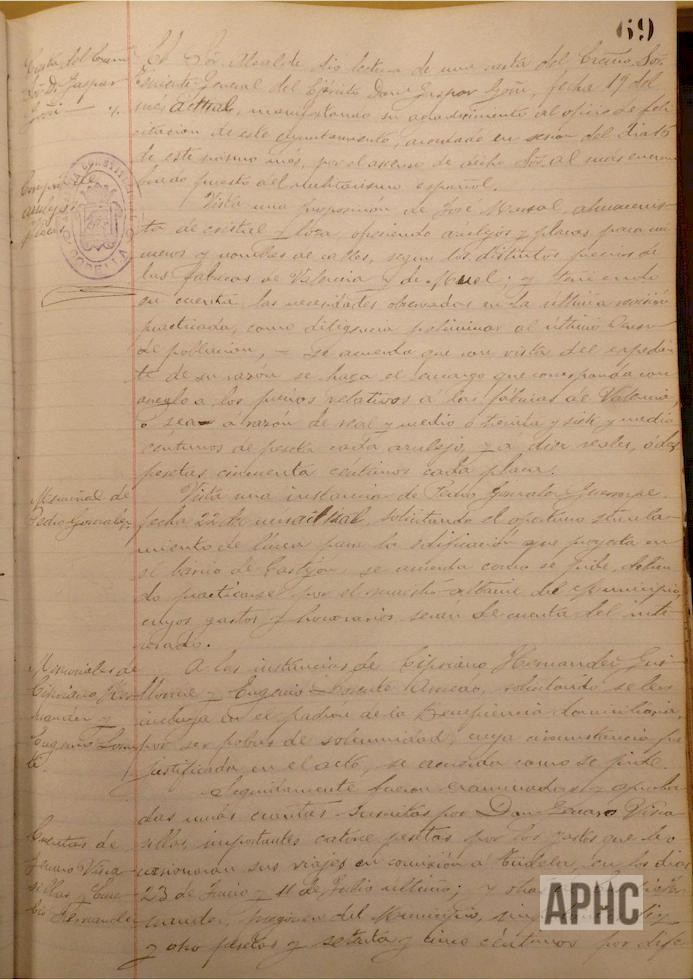 69
Carta del Excmo
Sor Dn Gaspar
Goñi
El Sor Alcalde dio lectura de una carta del Excmo. Sor.
Teniente General del Ejército Don Gaspar Goñi, fecha 19 del
mes actual, manifestando su agradecimiento al oficio de feli
citacion de este Ayuntamiento, acordado en sesion del dia
de este mismo mes, por el ascenso de dicho Sor. al mas encum
brado puesto del militarismo español.
azulejos
placas
Vista una proposición de José Marsal, almacenis
ta de cristal y loza, ofreciendo azulejos y placas para nú
meros y nombres de calles, segun los distintos precios de
las fabricas de Valencia y de Muel; y teniendo
en cuenta las necesidades observadas en la última revisión
practicada, como diligencia preliminar al último Censo
de poblacion, — se acuerda que con vista del expedien
te de su razon se haga el encargo que corresponda con
arreglo a los precios relativos á las fábricas de Valencia,
ó sea á razón de real y medio ó treinta y siete y medio
centimos de peseta cada azulejo, y á diez reales, ó dos
pesetas cincuenta centimos cada placa.
Memorial de
Pedro Gonzalez
Vista una instancia de Pedro Gonzalez
fecha 22 de mes actual, solicitando el oportuno señala
miento de linea para la edificación que proyecta en
el barrio de Castejón, se acuerda como se pide, debien
do practicarse por el maestro alarife del Municipio,
cuyos gastos y honorarios serán de cuenta del inte
resado.
Memoriales de
Cipriano Her
nandez y
Eugenio Loren
te.
A las instancias de Cipriano Hernandez
y Eugenio Lorente solicitando se les
incluya en el padrón de la Beneficencia domiciliaria,
por ser pobres de solemnidad, cuya circunstancia fue
justificada en el acto, se acuerda como se pide.
Cuentas de
Genaro Virca
sillas y Euse
bio Fernandez
Seguidamente fueron examinadas y aproba
das unas cuentas suscritas por Don Genaro
sillas, importantes catorce pesetas por los gastos que le o
casionaron sus viajes en comisión á Tudela, en los dias
23 de Junio y 11 de Julio último; y otra
nandez, pregonero del Municipio,
y ocho pesetas y setenta y cinco céntimos por dife
APHC